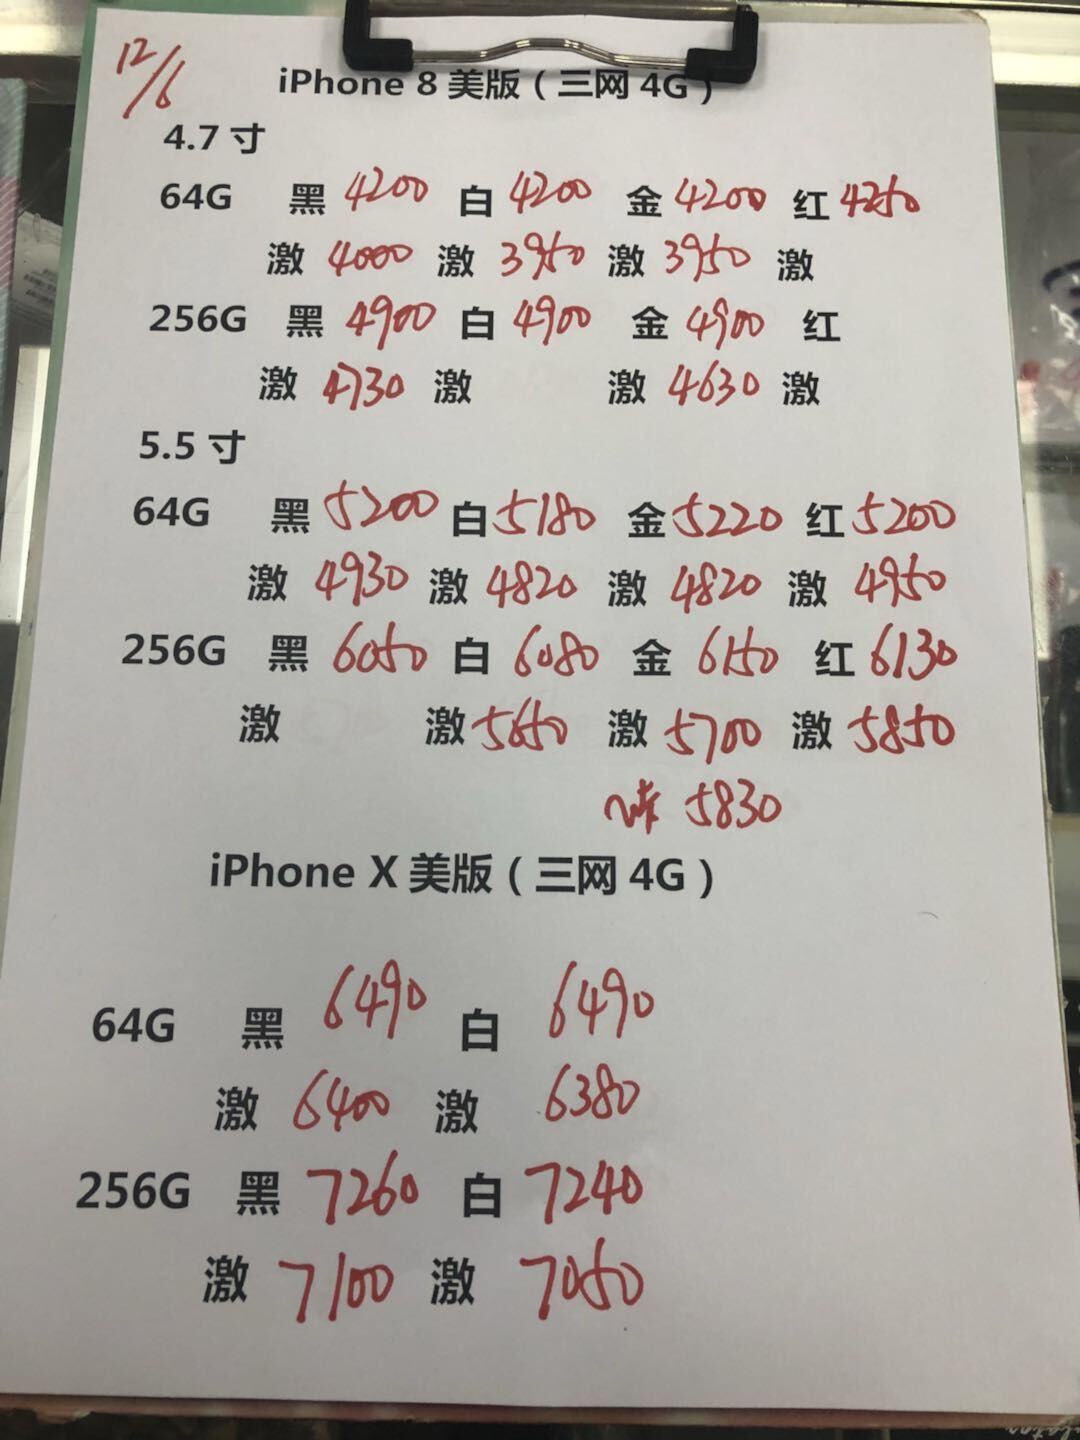 12/6
iPhone 8 美版（三网 4G）
4.7 寸
64G 黑 4200 白 4200 金 4200 红 4250
激 4000 激 3950 激 3950 激
256G 黑 4900 白 4900 金 4900 红
激 4730 激 激 4630 激
5.5 寸
64G 黑 5200 白 5180 金 5220 红 5200
激 4930 激 4820 激 4820 激 4950
256G 黑 6050 白 6080 金 6150 红 6130
激 激 5650 激 5700 激 5850
5830
iPhone X 美版（三网 4G）
64G 黑 6490 白 6490
激 6400 激 6380
256G 黑 7260 白 7240
激 7100 激 7050